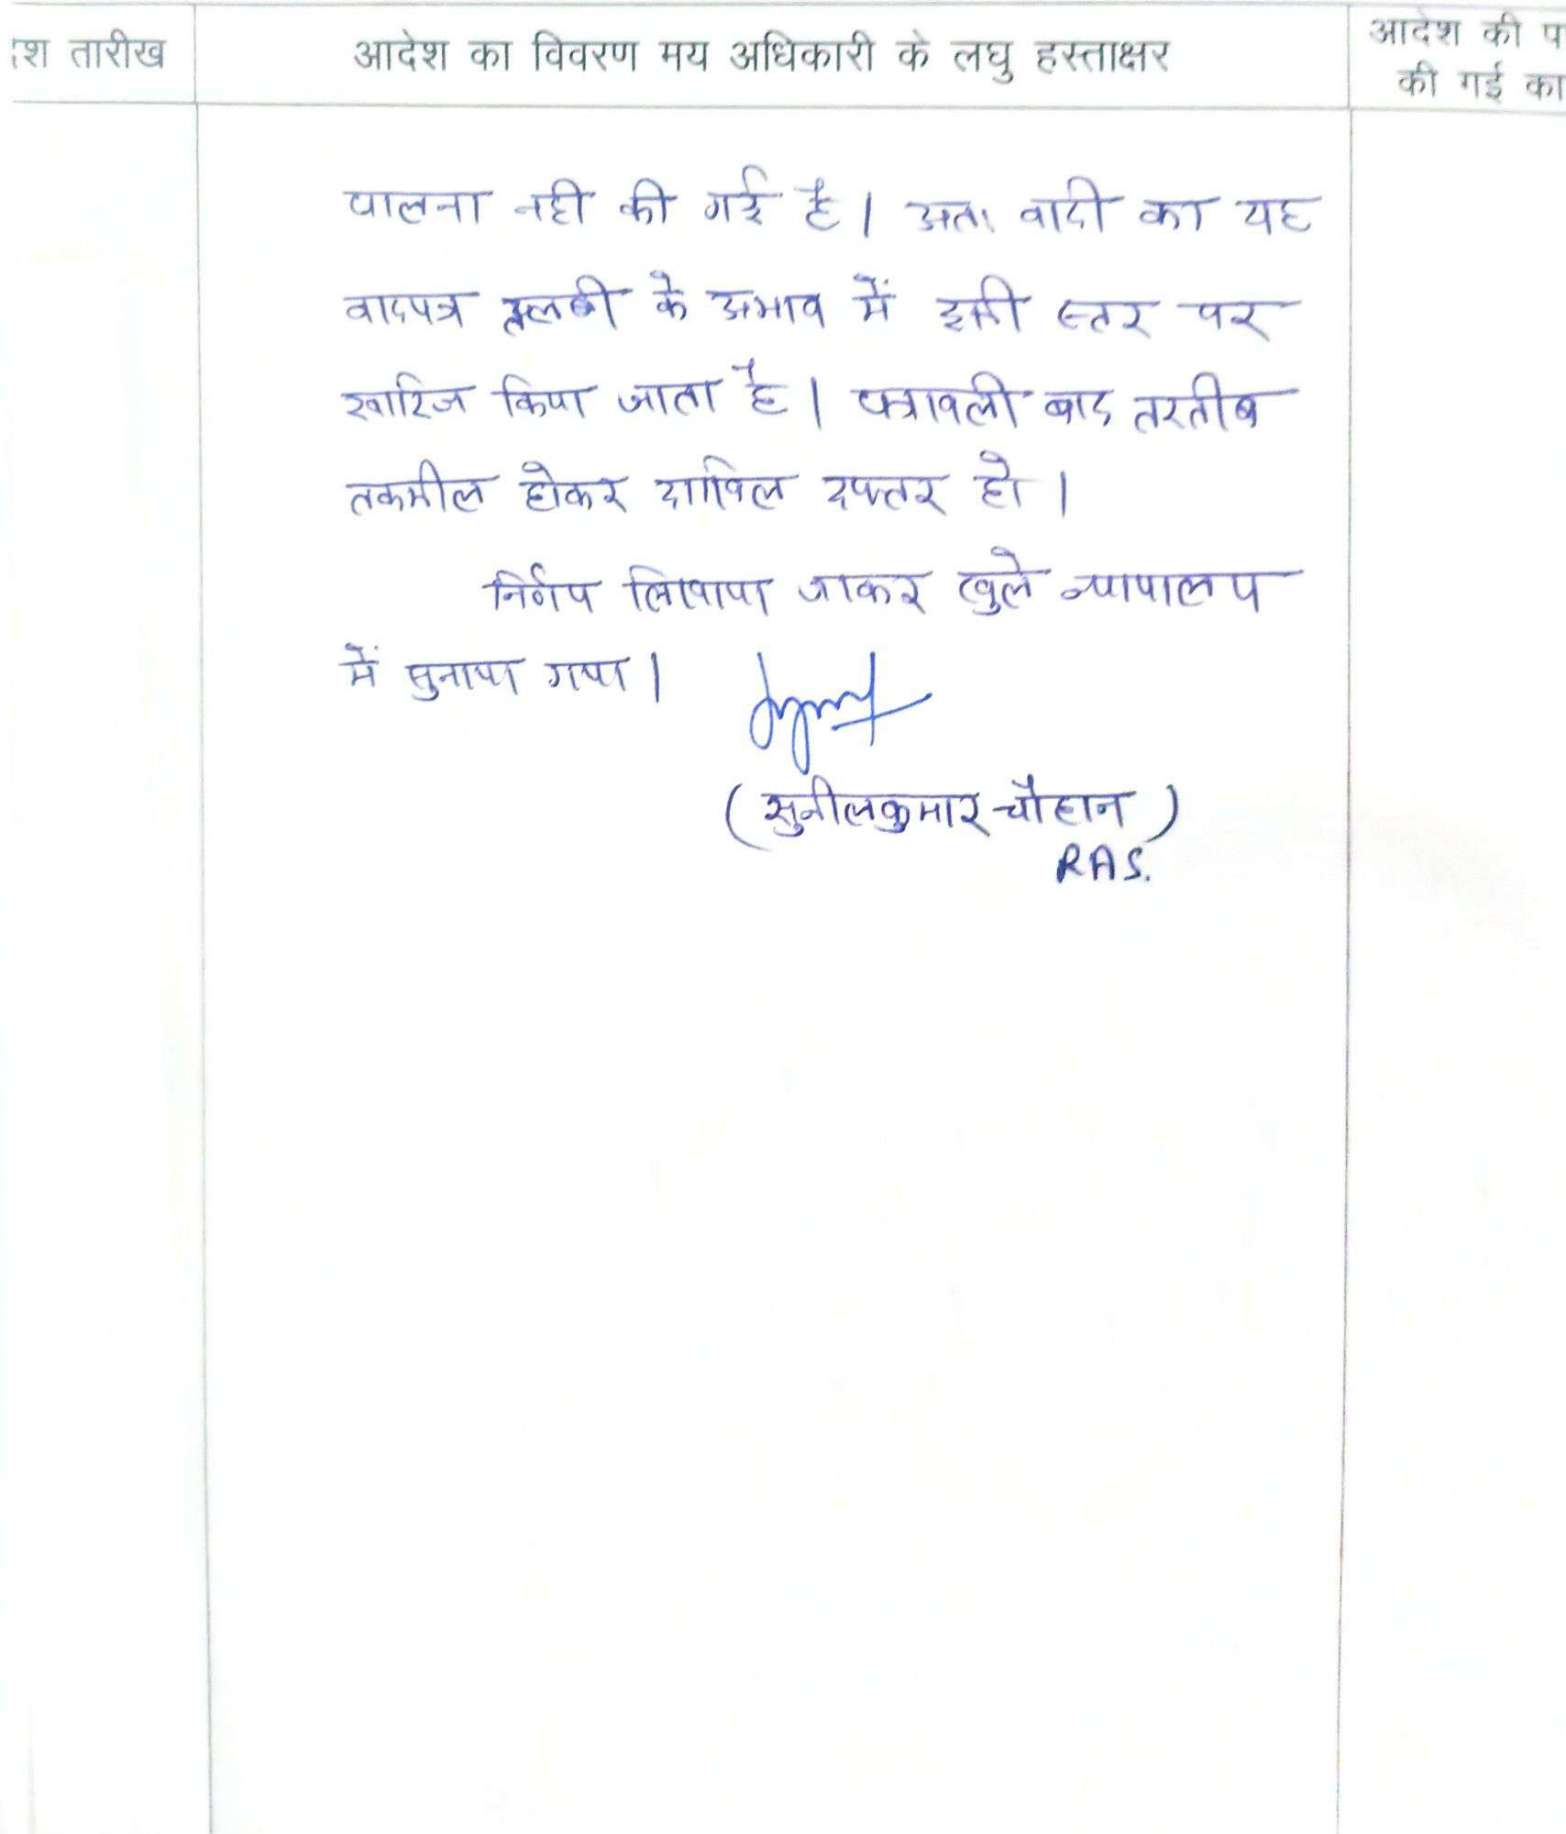 श तारीख
आदेश का विवरण मय अधिकारी के लघु हस्ताक्षर
आदेश की प
की गई का
पालना नही की गई है। अतः वादी का यह
वादपत्र तलबी के अभाव में इसी स्तर पर
खारिज किया जाता है। पत्रावली बाद तरतीब
तकमील होकर दाखिल दफ्तर हो।
निर्णय लिखाया जाकर खुले न्यायालय
में सुनाया गया।
(सुनीलकुमार चौहान)
RAS.